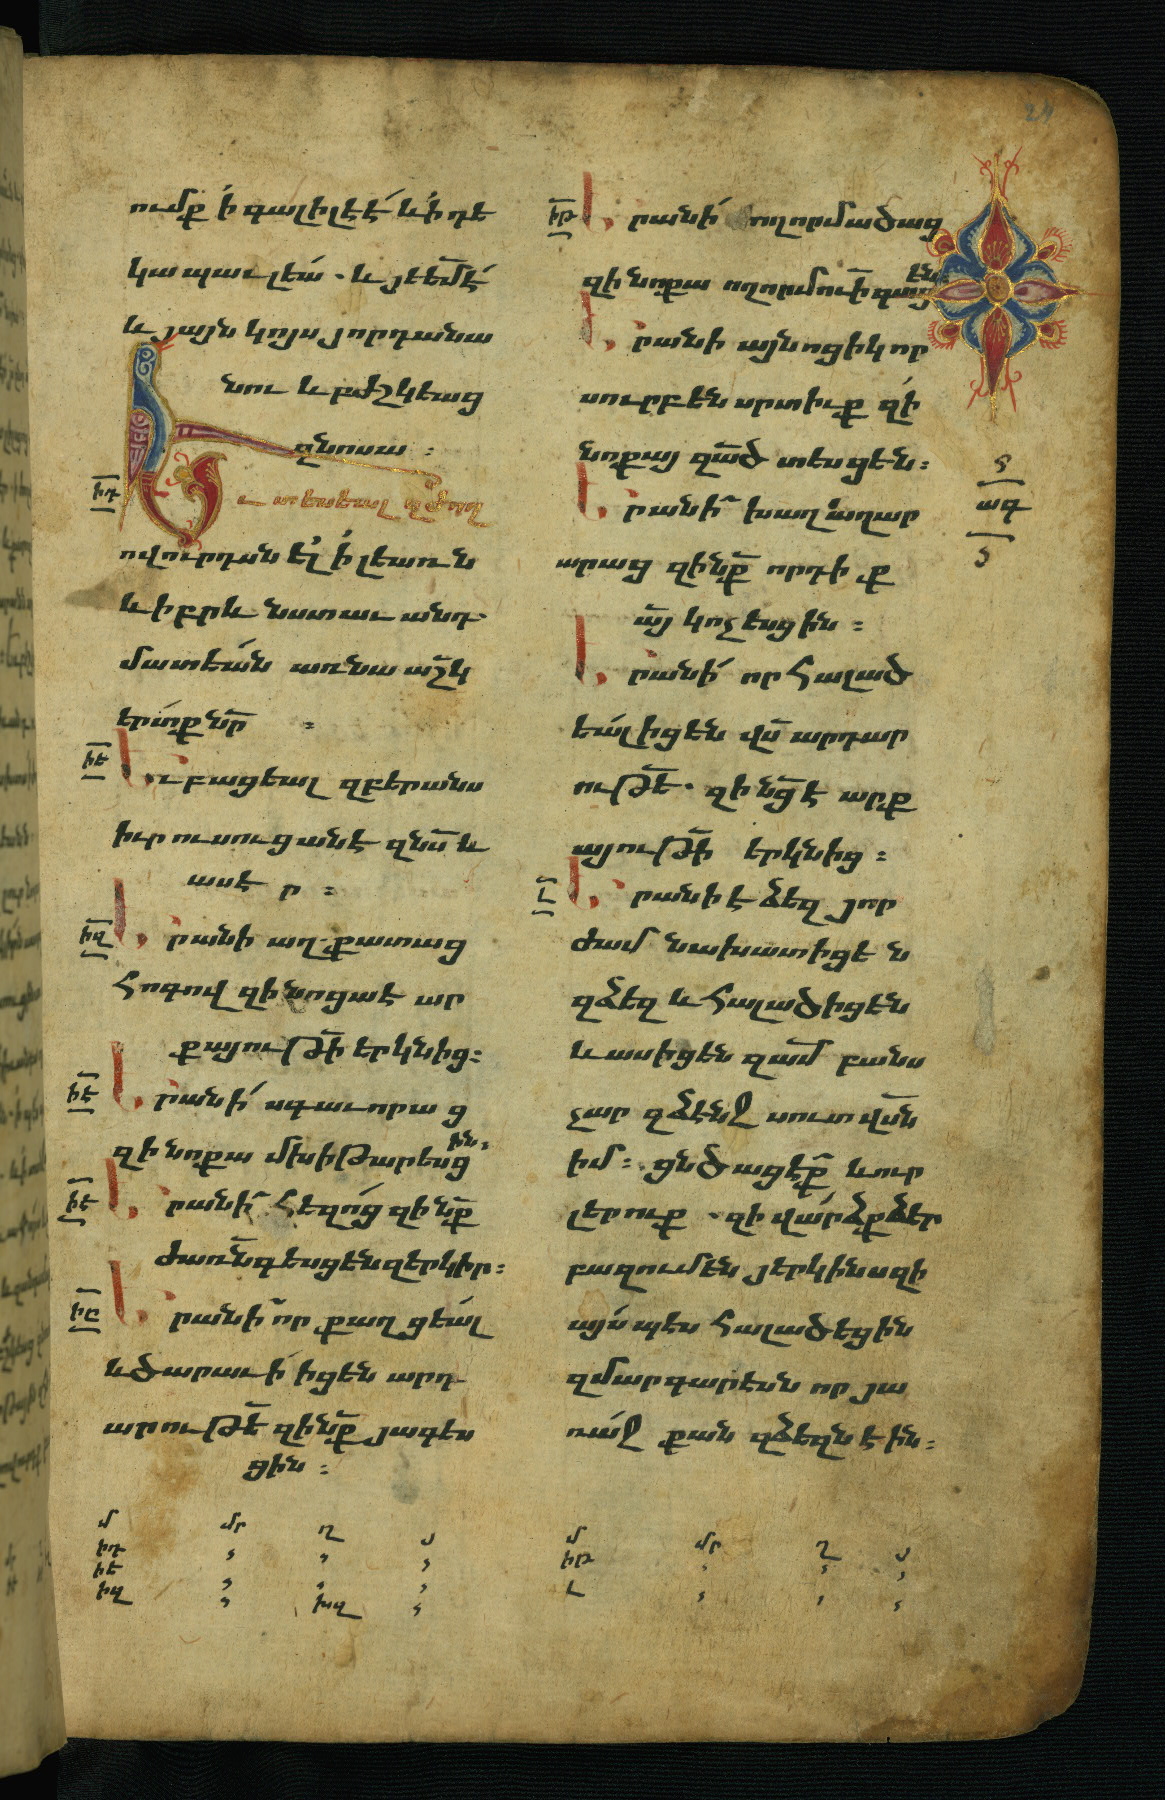 ումք ի գալիլէէ և ի դե
կապաւլեա. և յեէմէ
և յայն կոյս յորդանա
նու և բժշկեաց
զնոսա :
իդ
Եւ տեսեալ զժող
ովուրդսն ել ի լեառն
և իբրև նստաւ անդ
մատեան առնա աշկ
երտքնր :
իե
Եւ բացեալ զբերանս
իւր ուսուցանէ զնս և
ասէ
իզ
Երանի աղքատաց
հոգով զի նոցա է ար
քայուԹի երկնից :
իէ
Երանի սգաւորաց
զի նոքա մխիԹարեսց
ին :
իէ
Երանի հեզոց զի նք
ժառնգեսցեն զերկիր :
իը
Երանի որ քաղցեալ
և ծարաւի իցեն արդ
արուԹե զի նք յագես
ցին :
մ մր ղ յ
իդ
իե
իզ խզ
իԹ
Երանի ողորմածաց
զի նոքա ողորմուի գտց
են :
Երանի այնոցիկ որ
սուրբ են սրտիւք զի
նոքայ զած տեսցեն :
Երանի խաղաղար
արաց զի նք որդիք
այ կոչեսցին :
Երանի որ հալած
եալ իցեն վս արդար
ուԹե. զի նց է արք
այուԹի երկնից :
Լ
Երանի է ձեզ յոր
ժամ նախատիցեն
զձեզ և հալածիցեն
և ասիցեն զամ բանս
չար զձէնջ սուտ վսն
իմ : ցնծացէք և ուր
լերուք. զի վարձք ձեր
բազում են յերկինս զի
այսպէս հալածեցին
զմարգարէսն որ յա
ռաջ քան զձեզն էին :
ագ
մ մր ղ յ
իԹ
Լ